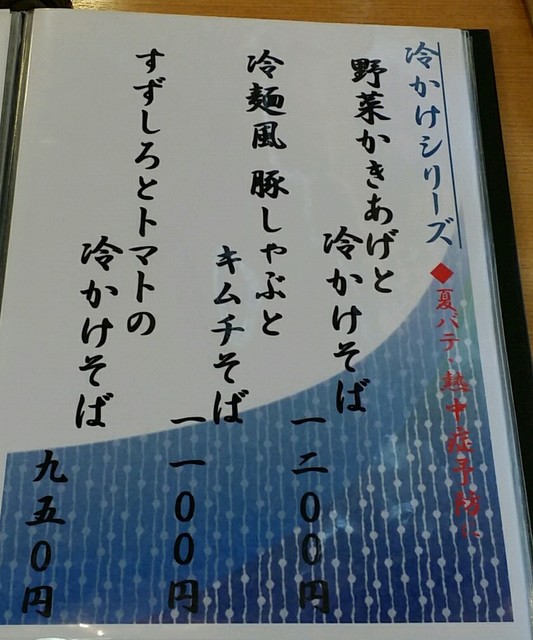 冷かけシリーズ
◆夏バテ、熱中症予防に
野菜かきあげと
冷かけそば
一二〇〇円
冷麺風 豚しゃぶと
キムチそば
一一〇〇円
すずしろとトマトの
冷かけそば
九五〇円